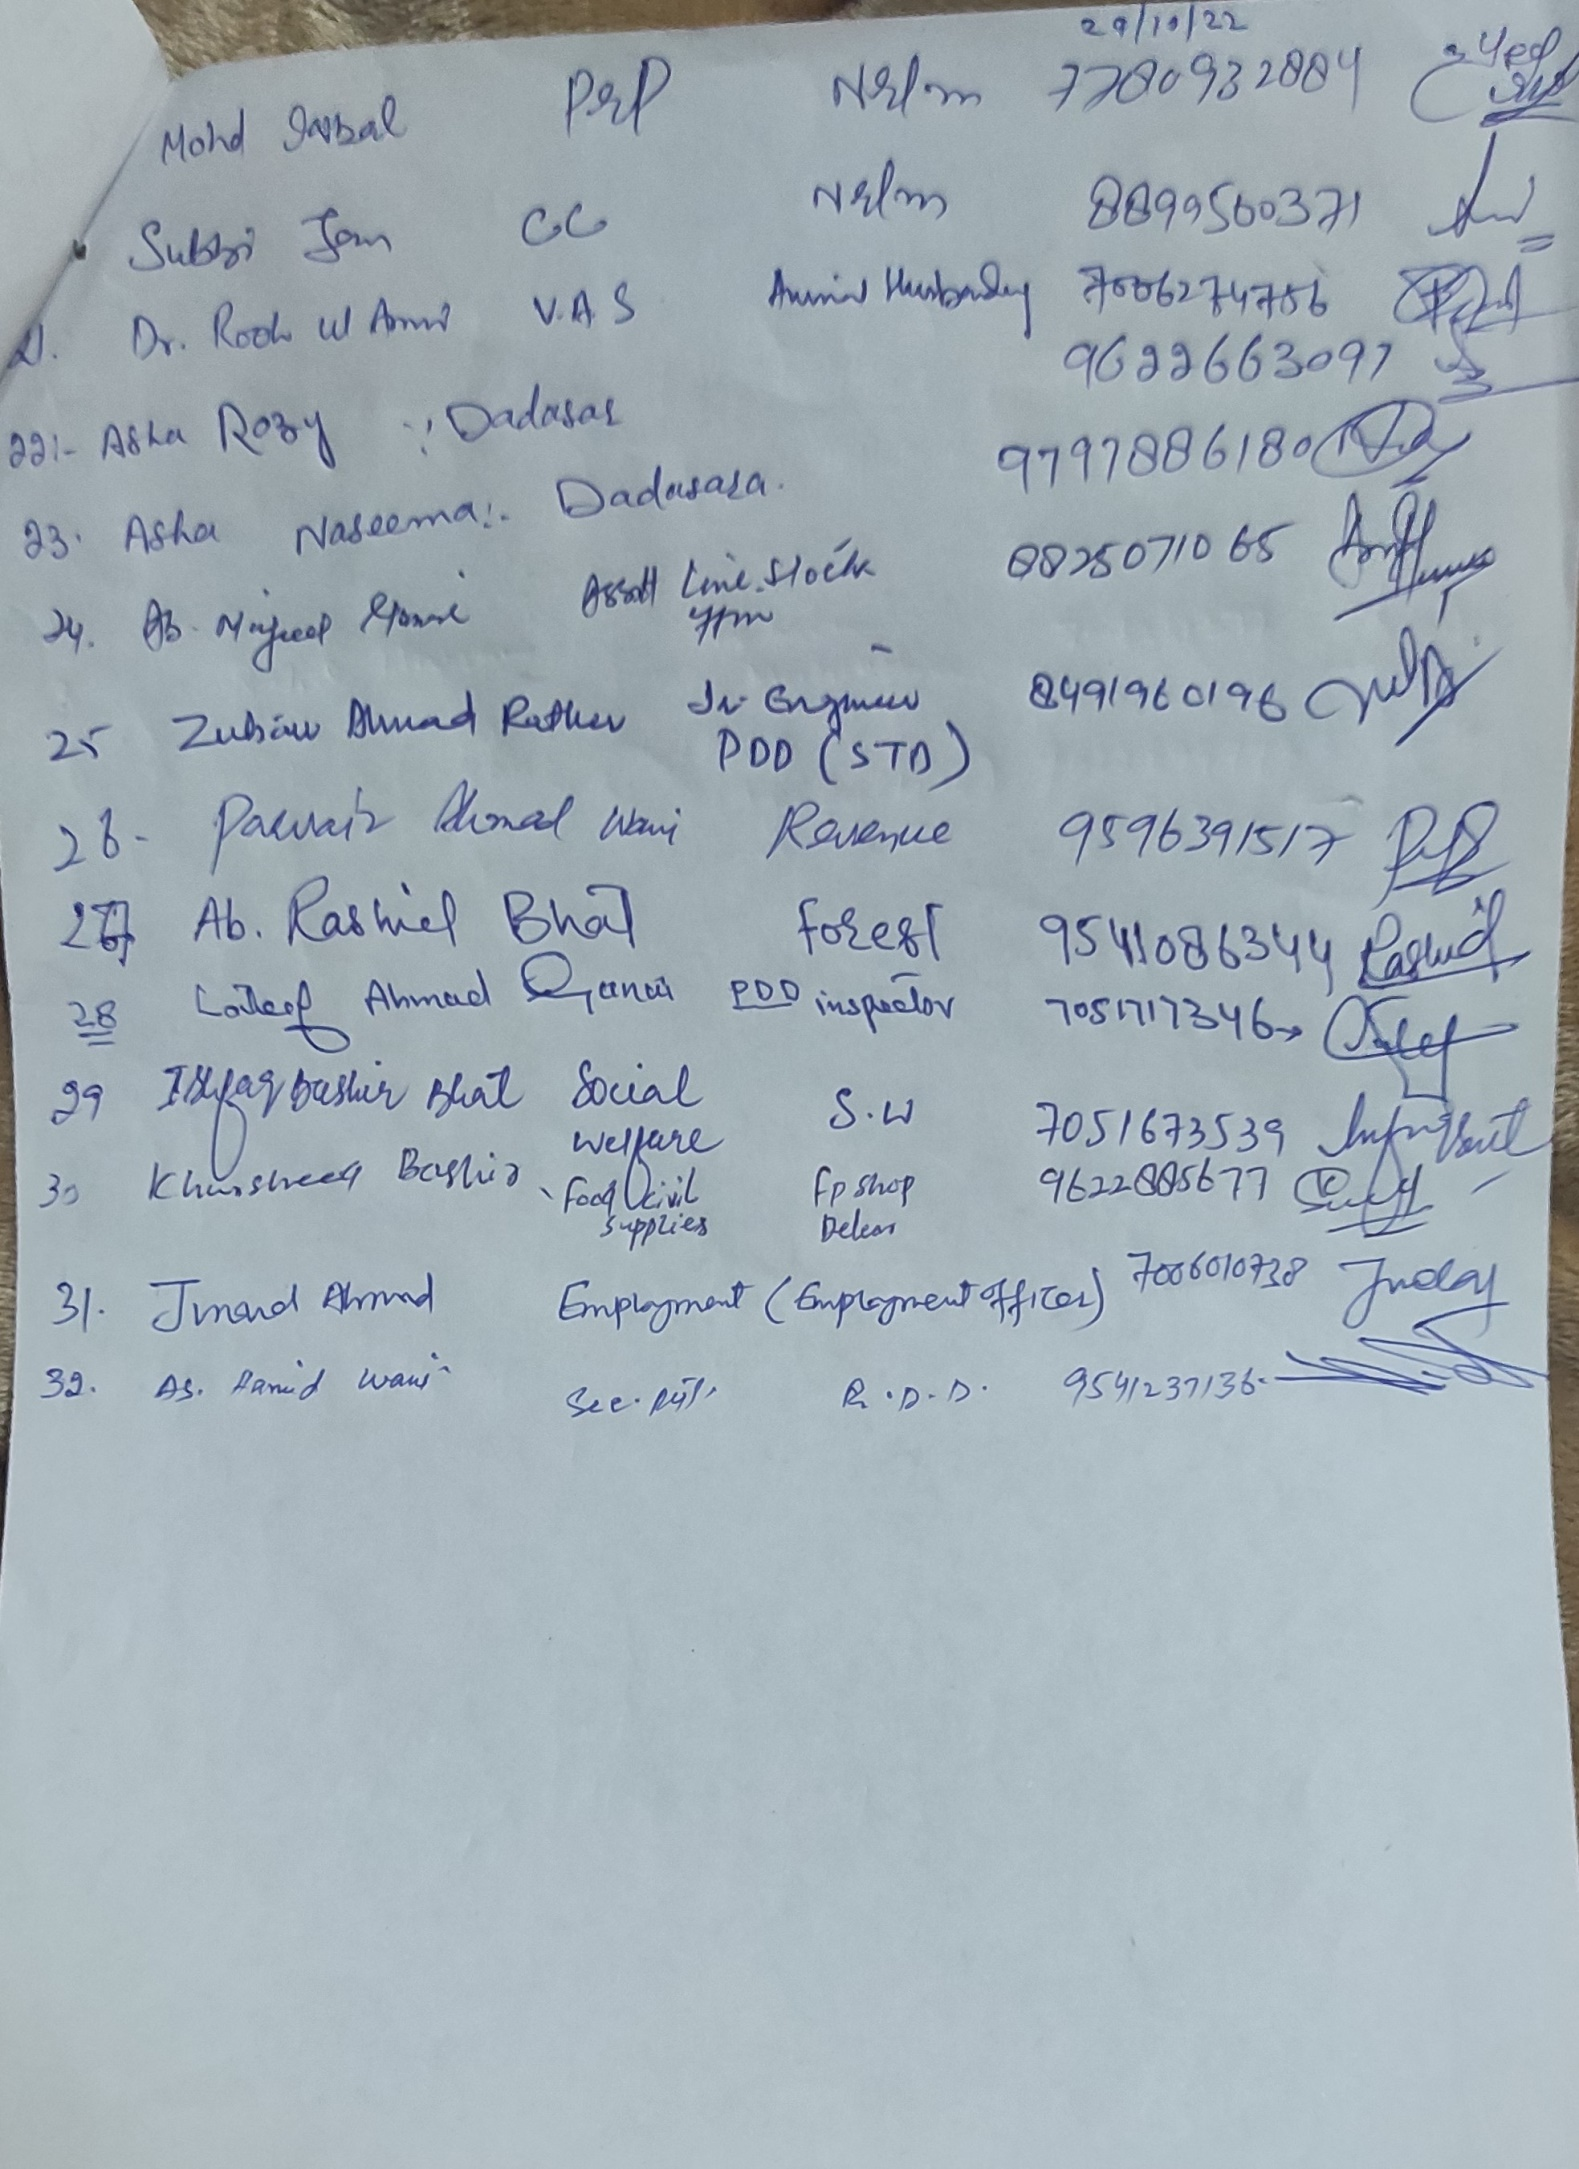 29/10/22
Mohd Iqbal PRP Nrlm 7780932884
Subzi Jan CC Nrlm 8899560371
21. Dr. Rooh ul Amin V.A.S Animal Husbandry 7006274786
9622663097
22:- Asha Rozy :: Dadasar
23. Asha Naseema:. Dadasara. 9797886180
24. Ab. Majeed Asstt Live Stock 8825071065
25 Zubair Ahmad Rather Jr. Engineer 8491960196
PDD (STD)
26- Parvaiz Ahmad Wani Revenue 9596391517
27 Ab. Rashid Bhat Forest 9541086344 Rashid
28 Lateef Ahmad Ganai PDD inspector 7051717346
29 Ishfaq Bashir Bhat Social S.W 7051673539
welfare
30 Khursheed Bashir Food civil Fp shop 9622885677
supplies Delear
31. Junaid Ahmad Employment (Employment officer) 7006010738
32. Ab. Hamid Wani Sec. R.D.D. 9541237136